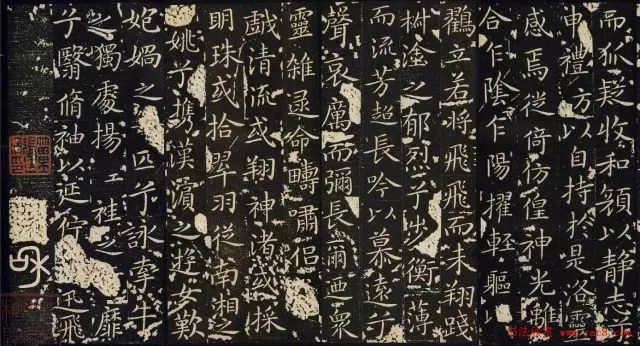 而狐疑收和顏以静志
申禮方以自持於是洛靈
感焉徙倚彷徨神光離
合乍陰乍陽擢輕軀以
鸛立若將飛飛而未翔踐
椒塗之郁烈兮步衡薄
而流芳超長吟以慕遠兮
聲哀厲而彌長爾迺眾
靈雜遝命疇嘯侶
戲清流或翔神渚或採
明珠或拾翠羽從南湘之
姚兮攜漢濱之遊女歎
妃媧之匹兮詠牽牛
之獨處揚袿之靡
兮翳脩袖以延佇迅飛